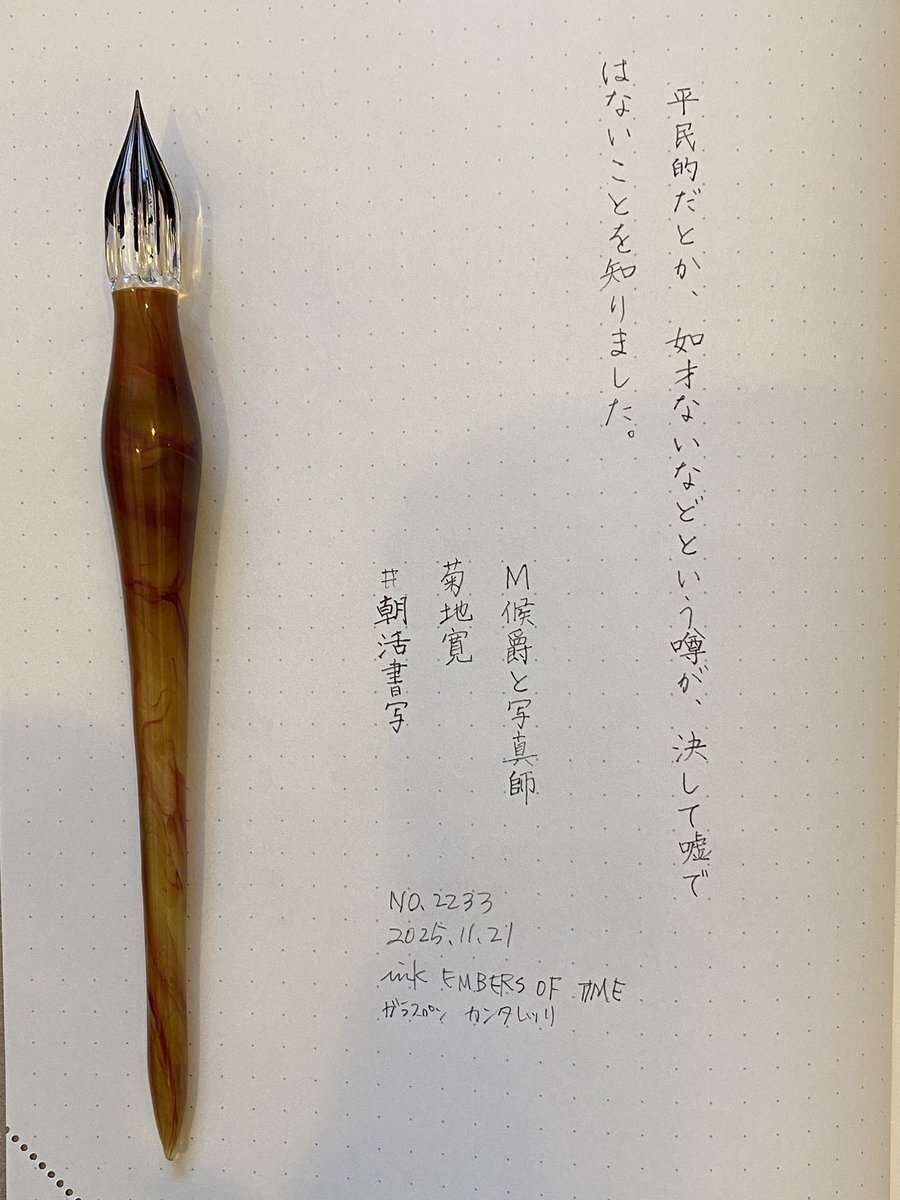 平民的だとか、如才ないなどという噂が、決して嘘で
はないことを知りました。
M候爵と写真師
菊地寛
#朝活書写
NO.2233
2025.11.21
ink EMBERS OF TIME
ガラスペン カンタレッリ